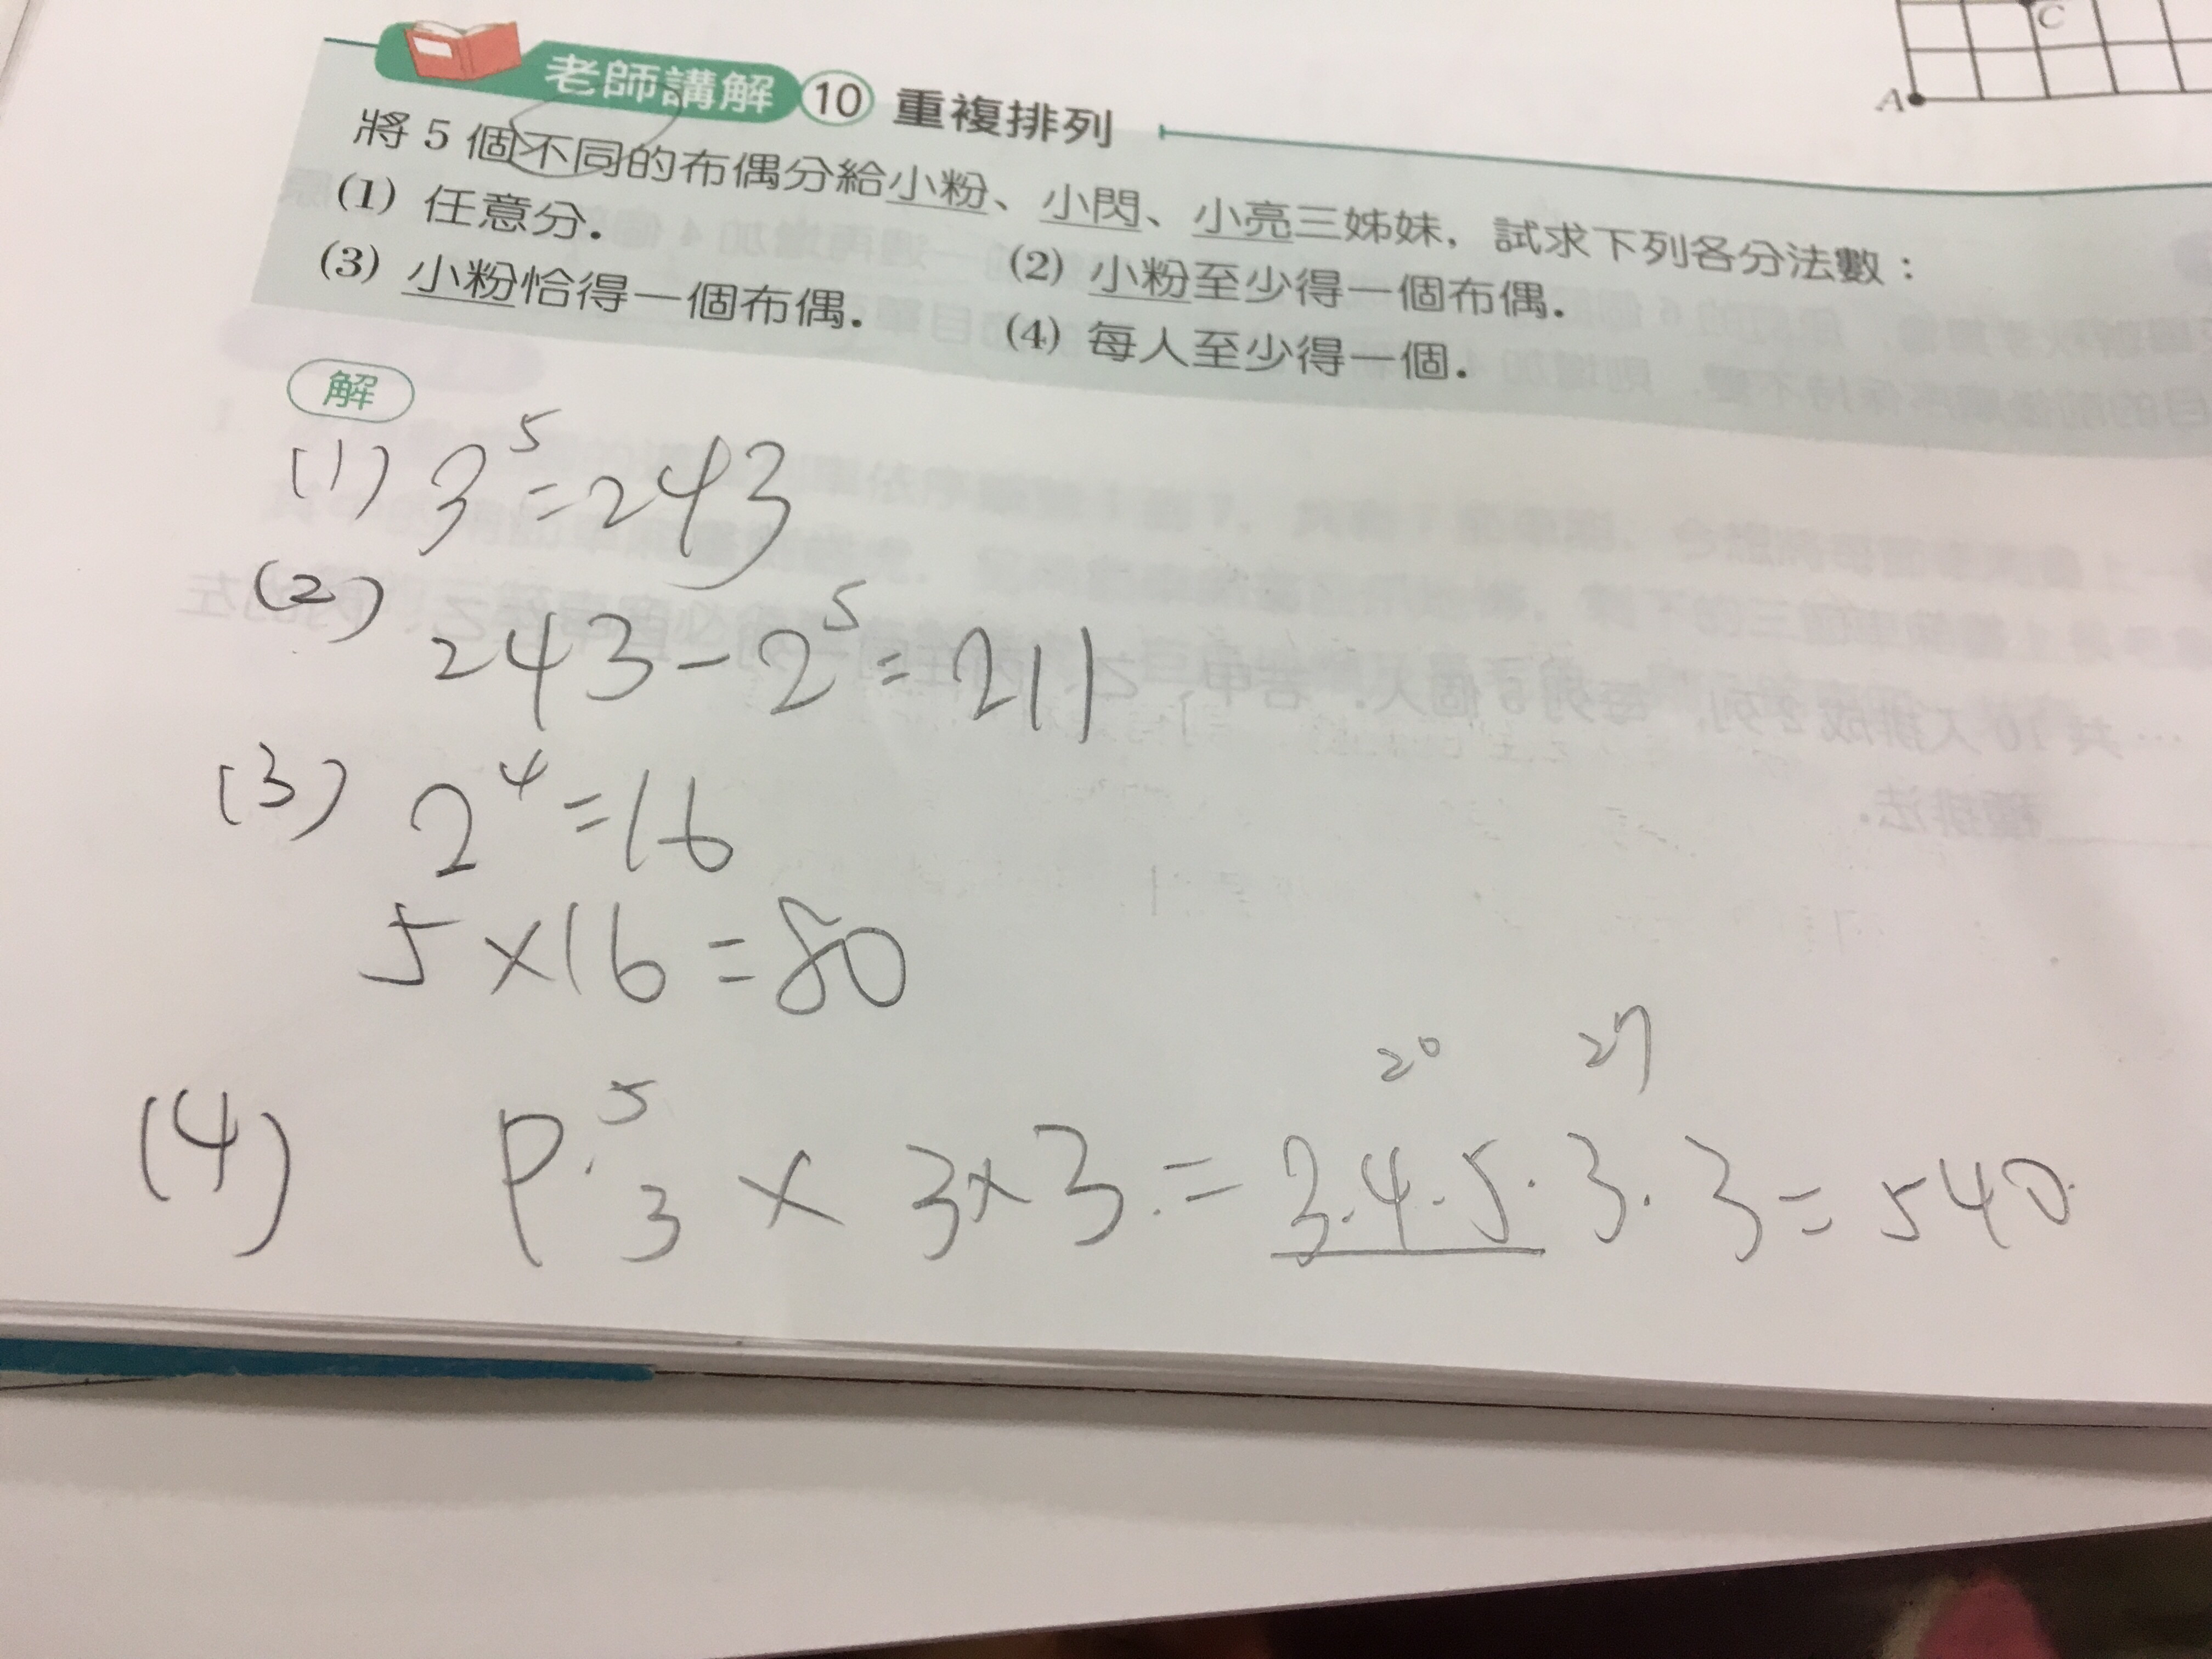 C
A
老師講解 10 重複排列
將 5 個不同的布偶分給小粉、小閃、小亮三姊妹，試求下列各分法數：
(1) 任意分．
(2) 小粉至少得一個布偶．
(3) 小粉恰得一個布偶．
(4) 每人至少得一個．
解
(1) 3⁵=243
(2) 243-2⁵=211
(3) 2⁴=16
5×16=80
20 27
(4) P⁵₃ × 3×3 = 3·4·5·3·3=540